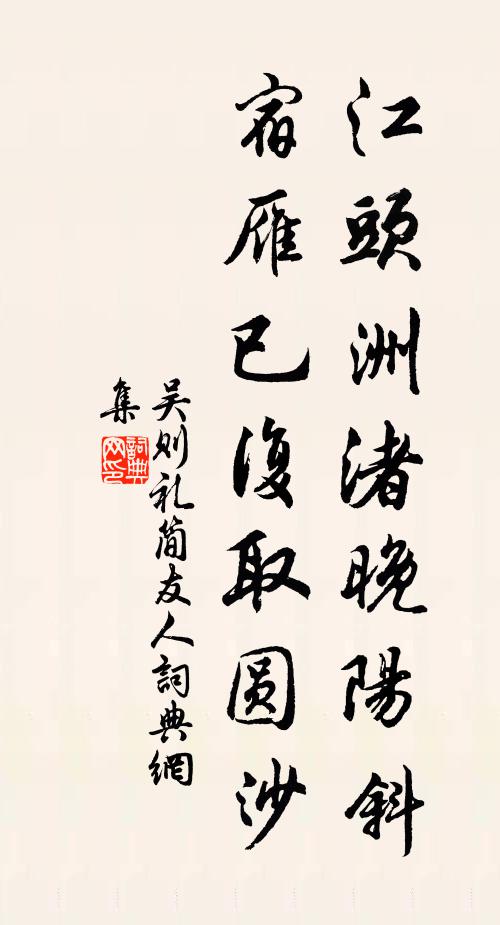 江頭洲渚晚陽斜
宿雁已復取圆沙
吴则礼简友人詞典網
集
詞典网印